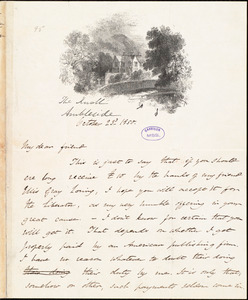 The Knoll
Ambleside
October 28th 1850.
My dear friend
This is just to say that if you should
ere long receive £ by the hands of my friend
Ellis Gray Loring, I hope you will accept it for
the Liberator, as my very humble offering in your
great cause. — I don't know for certain that you
will get it. That depends on whether I get
properly paid by an American publishing firm.
I have no reason whatever to doubt their doing
their duty by me. It is only that,
somehow or other, such payments seldom